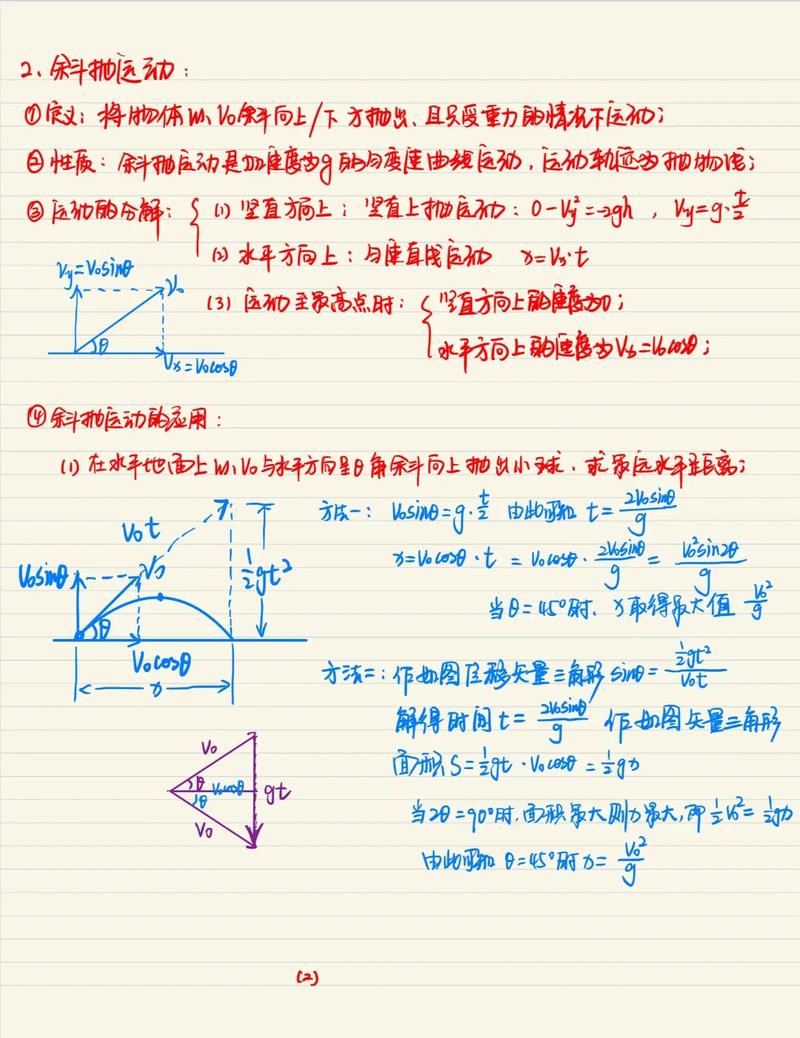 2、斜抛运动：
①定义：将物体以V₀斜向上/下方抛出、且只受重力的情况下运动；
②性质：斜抛运动是加速度为g的匀变速曲线运动，运动轨迹为抛物线；
③运动的分解：{ (1) 竖直方向上：竖直上抛运动：0-Vy²=-2gh，Vy=g·t/2
(2) 水平方向上：匀速直线运动 x=Vx·t
(3) 运动至最高点时：{ 竖直方向上的速度为0；
水平方向上的速度为Vx=V₀cosθ；
Vy=V₀sinθ
V₀
θ
Vx=V₀cosθ
④斜抛运动的应用：
(1) 在水平地面上以V₀与水平方向呈θ角斜向上抛出小球、求最远水平距离；
V₀t
½gt²
V₀sinθ
V₀
θ
V₀cosθ
x
方法一：V₀sinθ=g·t/2 由此可知 t=2V₀sinθ/g
x=V₀cosθ·t=V₀cosθ·2V₀sinθ/g=V₀²sin2θ/g
当θ=45°时、x取得最大值 V₀²/g
方法二：作如图位移矢量三角形 sinθ=½gt²/V₀t
解得时间t=2V₀sinθ/g 作如图矢量三角形
面积S=½gt·V₀cosθ=½gx
当2θ=90°时，面积最大则x最大，即½V₀²=½gx
由此可知 θ=45°时x=V₀²/g
V₀
θ
V₀cosθ
gt
θ
V₀
(2)